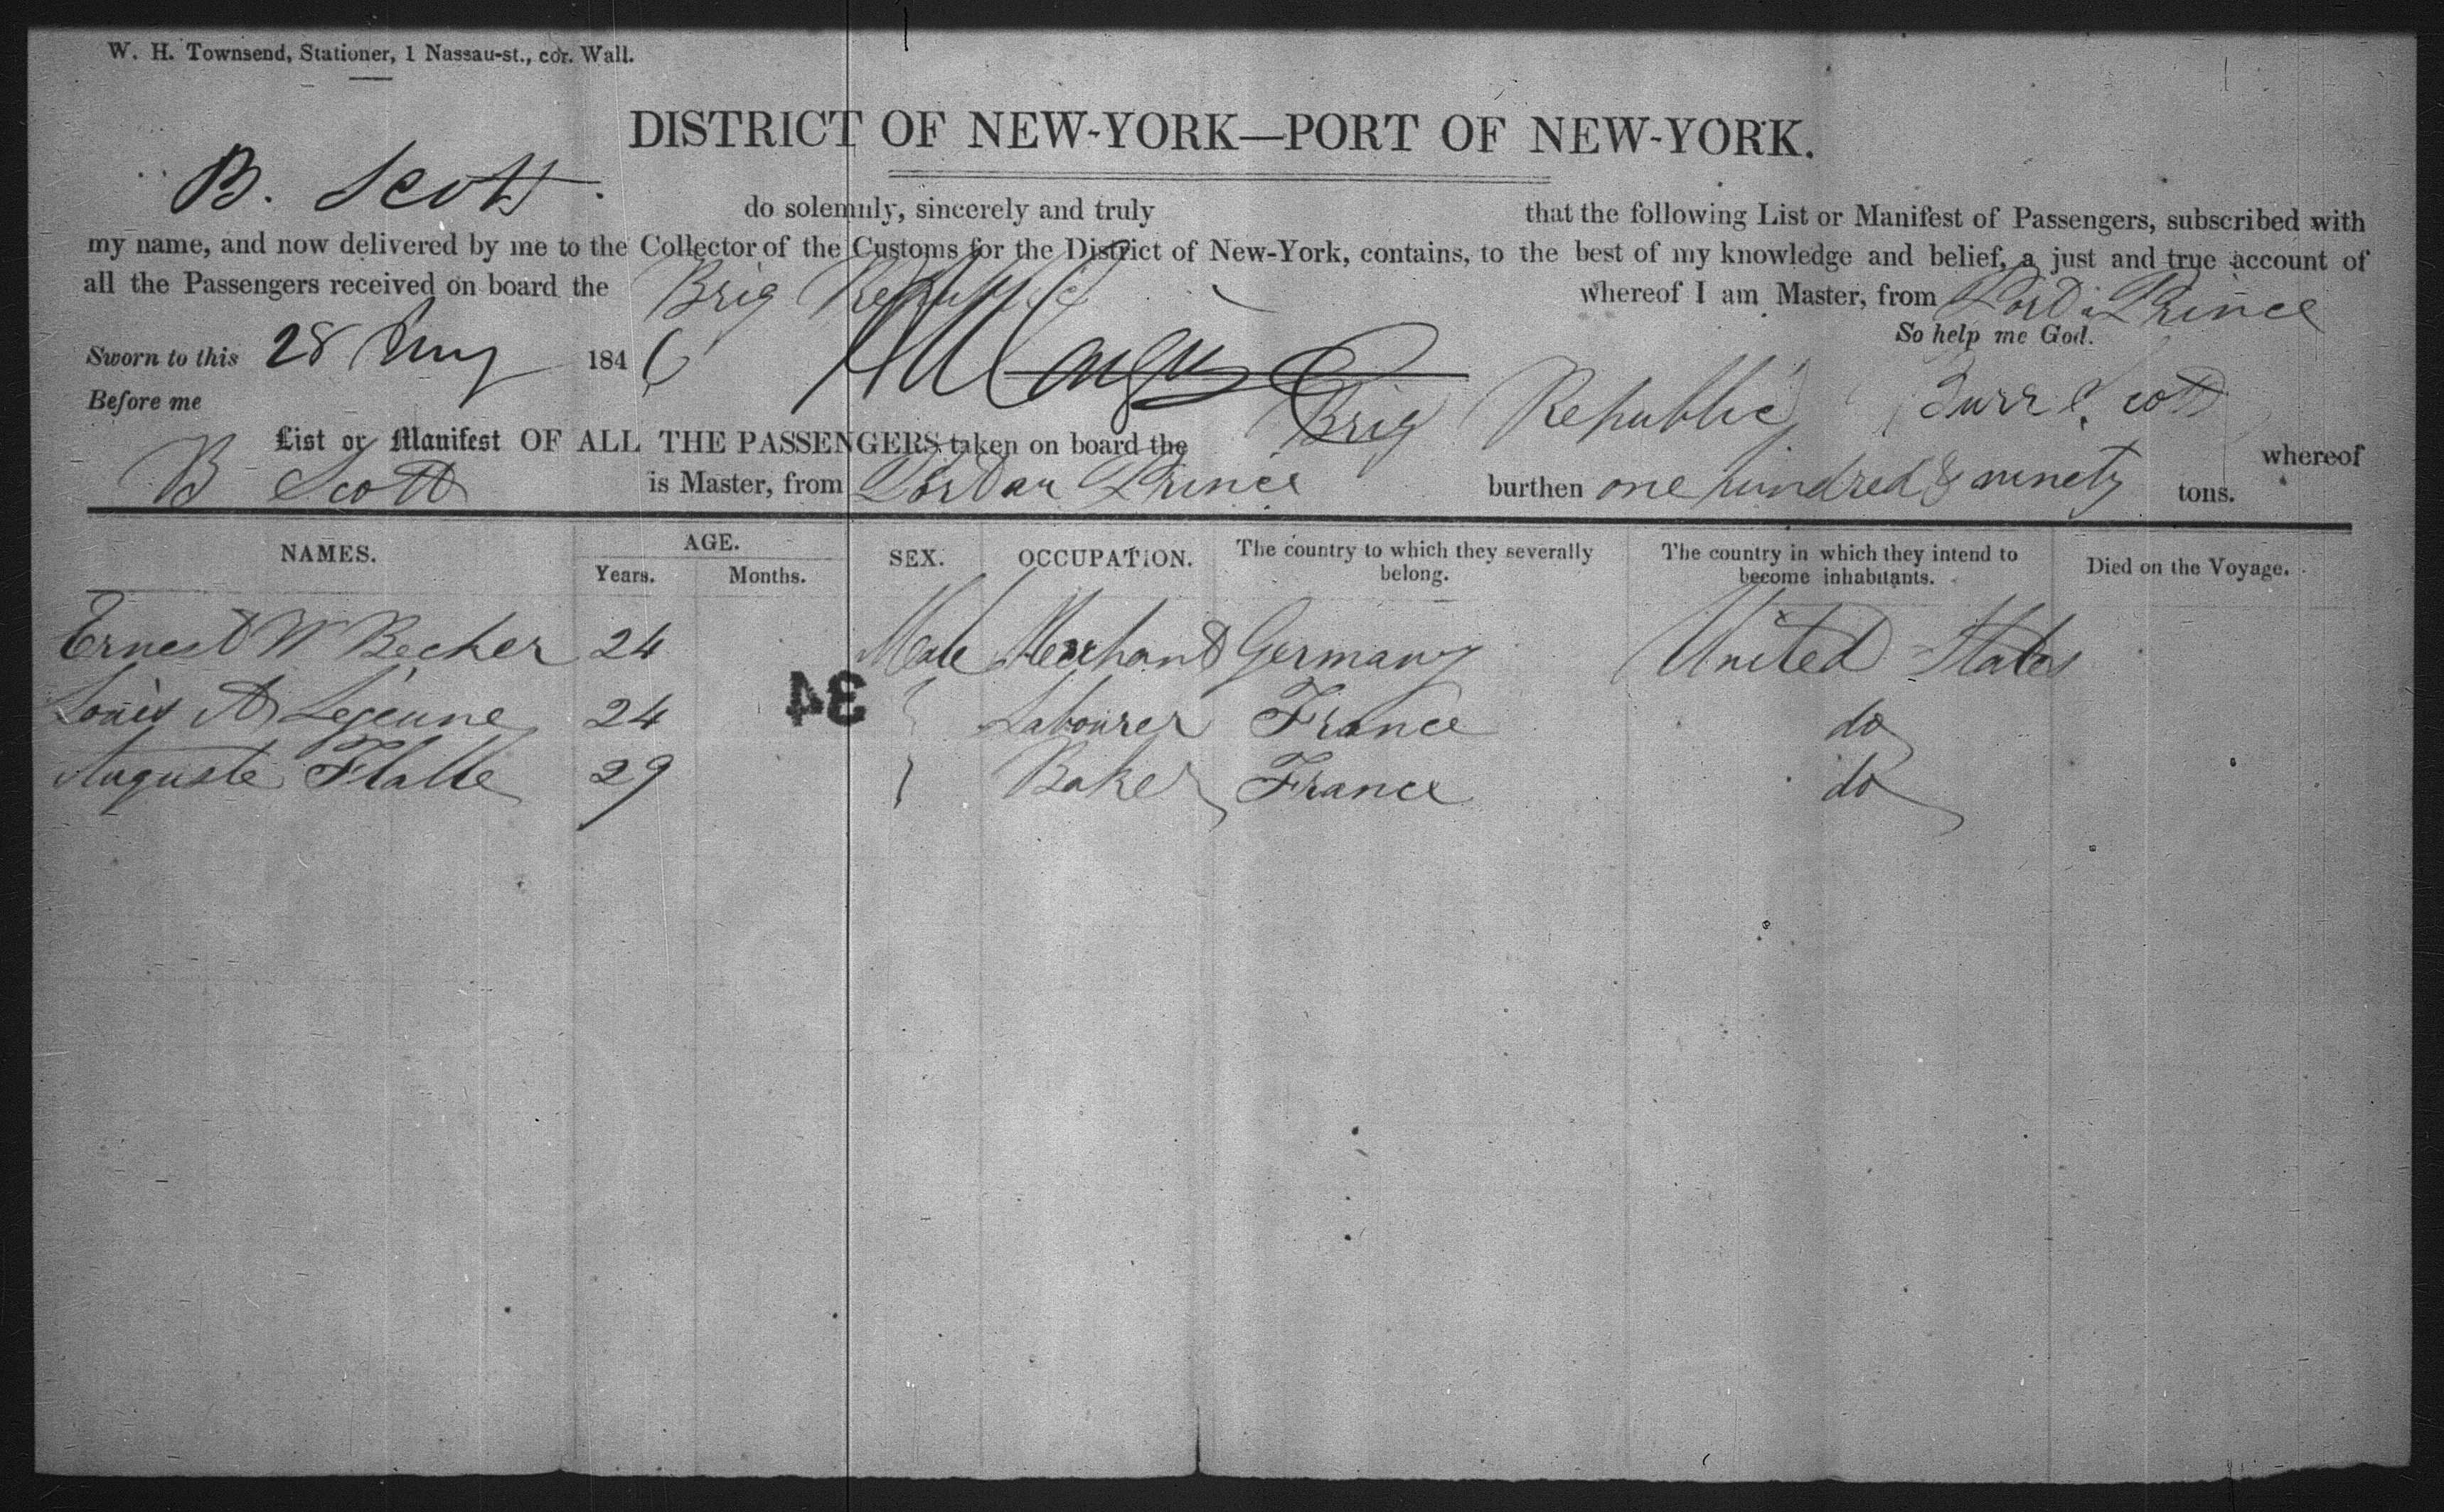 W. H. Townsend, Stationer, 1 Nassau-st., cor. Wall.
DISTRICT OF NEW-YORK—PORT OF NEW-YORK.
B. Scott do solemnly, sincerely and truly that the following List or Manifest of Passengers, subscribed with
my name, and now delivered by me to the Collector of the Customs for the District of New-York, contains, to the best of my knowledge and belief, a just and true account of
all the Passengers received on board the Brig Republic whereof I am Master, from Port a Prince
So help me God.
Sworn to this 28 Aug 1846
Before me Burr Scott
List or Manifest OF ALL THE PASSENGERS taken on board the Brig Republic whereof
B Scott is Master, from Port au Prince burthen one hundred & ninety tons.
NAMES. AGE. SEX. OCCUPATION. The country to which they severally belong. The country in which they intend to become inhabitants. Died on the Voyage.
Years. Months.
Ernest W Becher 24 Male Merchant Germany United States
34
Louis A Lejeune 24 Labourer France do
Auguste 29 Baker France do